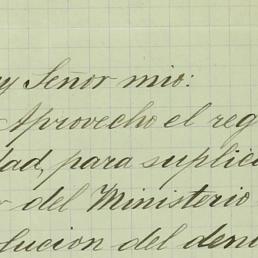 y Senor mio:
Aprovecho el reg
dad, para suplica
del Ministerio
lucion del den